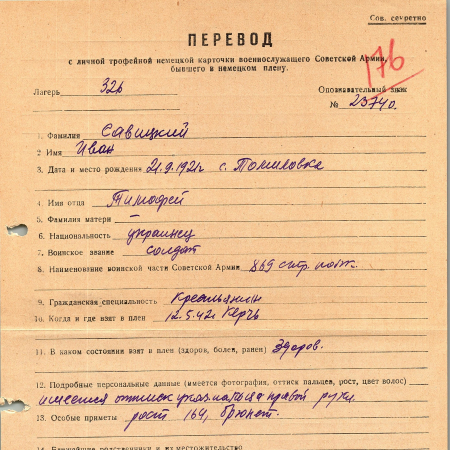 Сов. секретно
ПЕРЕВОД
с личной трофейной немецкой карточки военнослужащего Советской Армии,
бывшего в немецком плену.
176
Лагерь 326
Опознавательный знак
№ 23740.
1. Фамилия Савицкий
2 Имя Иван
3. Дата и место рождения 21.9.1921г с. Томиловка
4. Имя отца Тимофей
5. Фамилия матери —
6. Национальность украинец
7. Воинское звание солдат
8. Наименование воинской части Советской Армии 869 стр. полк.
9. Гражданская специальность Крестьянин
10. Когда и где взят в плен 12.5.42г Керчь
11. В каком состоянии взят в плен (здоров, болен, ранен) Здоров.
12. Подробные персональные данные (имеется фотография, оттиск пальцев, рост, цвет волос)
имеется оттиск указ. пальца правой руки.
13. Особые приметы рост 164, брюнет.
14. Ближайшие родственники и их местожительство